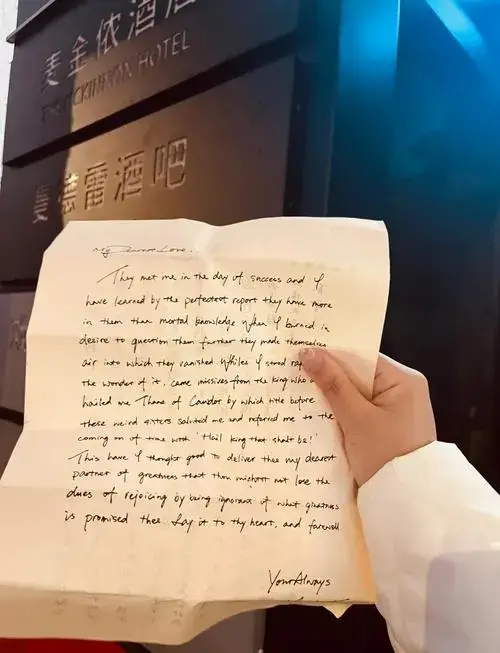 麦金侬酒
McKINNON HOTEL
曼德雷酒吧
My Dearest Love,
They met me in the day of success and I
have learned by the perfectest report they have more
in them than mortal knowledge When I burned in
desire to question them further they made themselves
air into which they vanished Whiles I stood
the wonder of it, came missives from the king who
hailed me Thane of Cawdor by which title before
these weird sisters saluted me and referred me to the
coming on of time with 'Hail king that shalt be!'
This have I thought good to deliver thee my dearest
partner of greatness that thou mightst not lose the
dues of rejoicing by being ignorant of what greatness
is promised thee. Lay it to thy heart, and farewell
Your Always